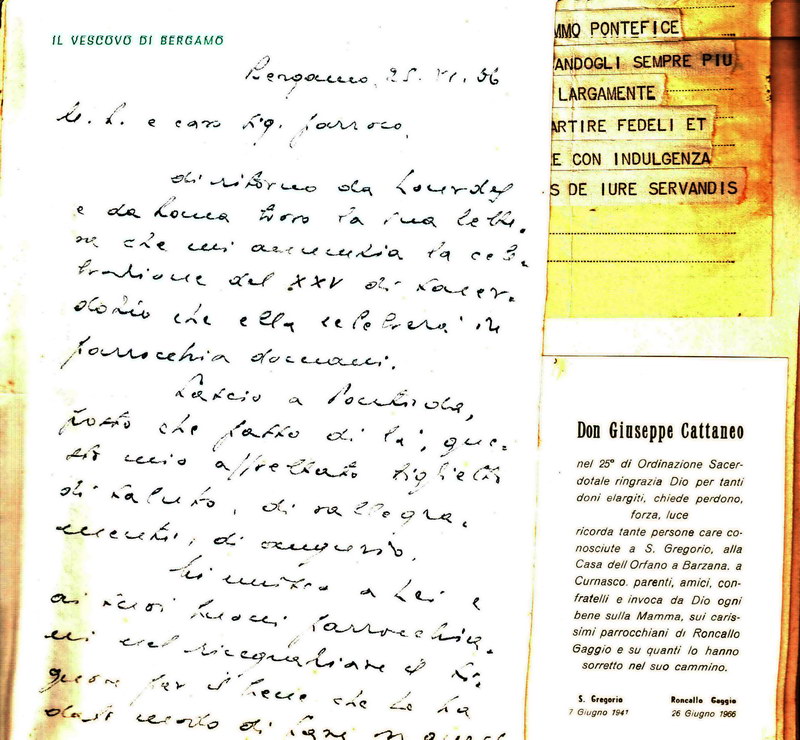 IL VESCOVO DI BERGAMO
Bergamo, 25. VI. 66
M. R. e caro Sig. Parroco,
di ritorno da Lourdes
e da Roma trovo la sua lette-
ra che mi annunzia la cele-
brazione del XXV di sacer-
dozio che ella celebrerà in
parrocchia domani.
Lascio a Pontirolo,
posto che passo di là, que-
sto mio affrettato biglietto
di saluto, di rallegra-
menti, di augurio.
Mi unisco a Lei e
ai suoi buoni parrocchia-
ni nel ringraziare il Si-
gnore per il bene che Le ha
dato modo di fare in
MMO PONTEFICE
ANDOGLI SEMPRE PIU
LARGAMENTE
ARTIRE FEDELI ET
E CON INDULGENZA
S DE IURE SERVANDIS
Don Giuseppe Cattaneo
nel 25° di Ordinazione Sacer-
dotale ringrazia Dio per tanti
doni elargiti, chiede perdono,
forza, luce
ricorda tante persone care co-
nosciute a S. Gregorio, alla
Casa dell'Orfano a Barzana, a
Curnasco, parenti, amici, con-
fratelli e invoca da Dio ogni
bene sulla Mamma, sui caris-
simi parrocchiani di Roncallo
Gaggio e su quanti lo hanno
sorretto nel suo cammino.
S. Gregorio Roncallo Gaggio
7 Giugno 1941 26 Giugno 1966